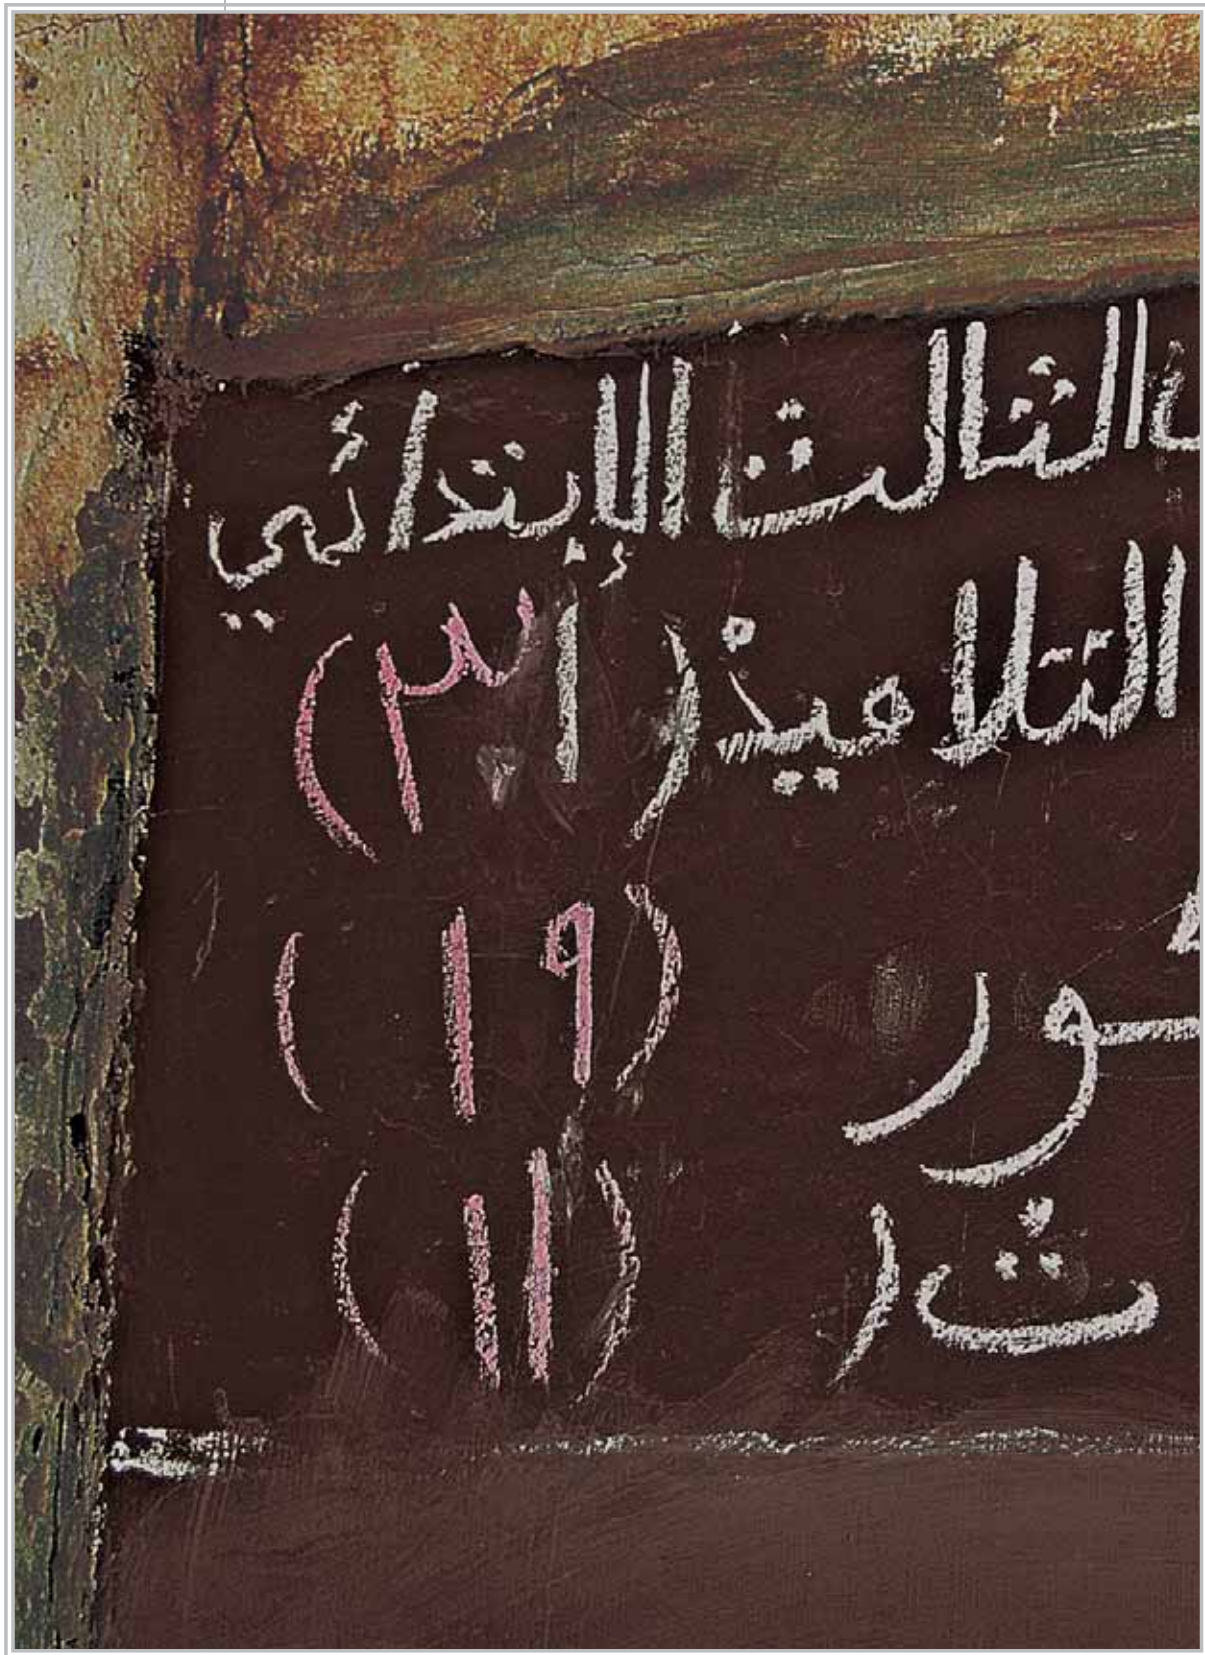 الثالث الإبتدائي
التلاميذ (٣١)
ـور (١٩)
ث ( (١١)